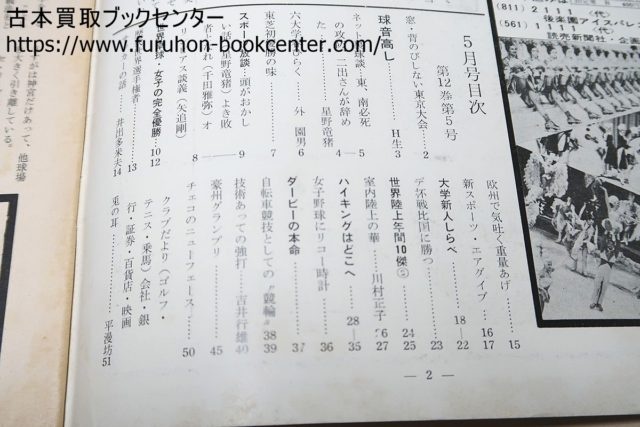 古本買取ブックセンター
https://www.furuhon-bookcenter.com/
(811) 211
(561) 11
後楽園アイスパレ
読売新聞社・企
5月号目次
第12巻第5号
窓・背のびしない東京大会……2
球音高し……H生 3
東、南必死
の攻……二出さんが辞め
た……星野竜猪 4—5
六大学ひらく……外 園男 6
東芝初優勝の味……7
スポーツ放談・頭がおかし
い話(星野竜猪)よき敗
者たれ(千田雅弥)オ
アス談義(矢追剛)8—9
世界卓球・女子の完全優勝……10・12
世界選手権者……13
カーの話……井出多米夫 14
欧州で気吐く重量あげ……15
新スポーツ・エアダイブ……16 17
大学新人しらべ……18—22
デ杯戦比国に勝つ……23
世界陸上年間10傑……24 25
室内陸上の華……川村正子 26 27
ハイキングはどこへ……28—35
女子野球にリコー時計……36
ダービーの本命……37
自転車競技としての“競輪”……38 39
技術あっての強打……吉井行雄 40
豪州グランプリ……45
チェコのニューフェース……50
クラブだより(ゴルフ・
テニス・乗馬)会社・銀
行・証券・百貨店・映画
兎の耳……平漫坊 51
— 2 —
がは神宮だけあって、他球場
きく引き離している。